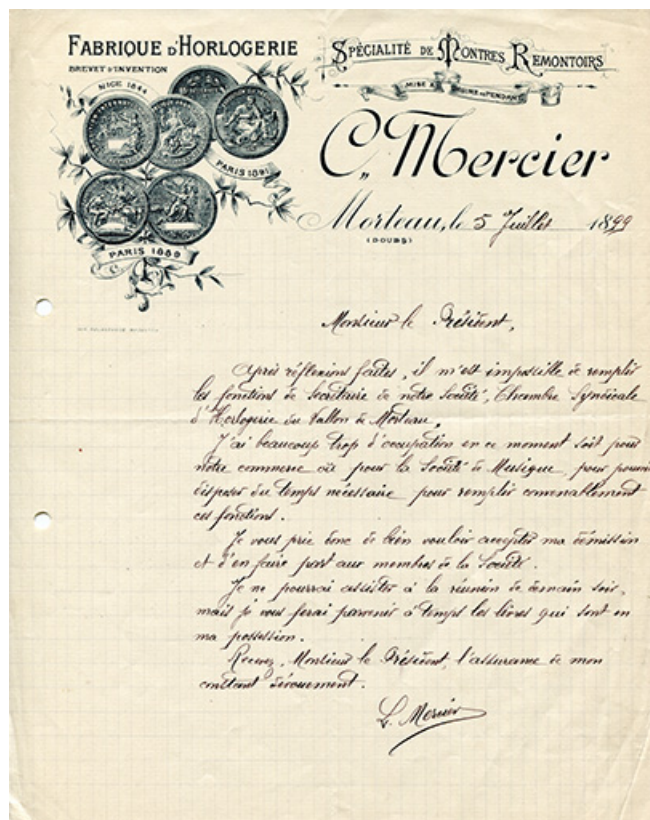 FABRIQUE D'HORLOGERIE
BREVET D'INVENTION
NICE 1844
PARIS 1891
PARIS 1889
SPÉCIALITÉ DE MONTRES REMONTOIRS
MISE À HEURE AU PENDANT
C. Mercier
Morteau, le 5 Juillet 1899
(DOUBS)
Monsieur le Président,
Après réflexions faites, il m'est impossible de remplir
les fonctions de Secrétaire de notre Société, Chambre Syndicale
d'Horlogerie du Vallon de Morteau,
J'ai beaucoup trop d'occupation en ce moment soit pour
notre commerce où pour la Société de Musique, pour pouvoir
disposer du temps nécessaire pour remplir convenablement
ces fonctions.
Je vous prie donc de bien vouloir accepter ma démission
et d'en faire part aux membres de la Société.
Je ne pourrai assister à la réunion de demain soir,
mais je vous ferai parvenir à temps les livres qui sont en
ma possession.
Recevez, Monsieur le Président, l'assurance de mon
constant dévouement.
Mercier